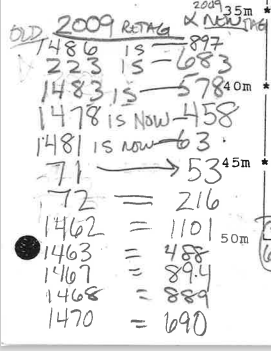 2009 35m *
OLD 2009 RETAG & NEW TAG
1486 is — 897
223 is — 683
1483 is — 578 40m *
1478 is NOW — 458
1481 is now — 63.
71 → 53 45m *
72 = 216
1462 = 1101
50m
1463 = 488
1467 = 894
1468 = 889
1470 = 690